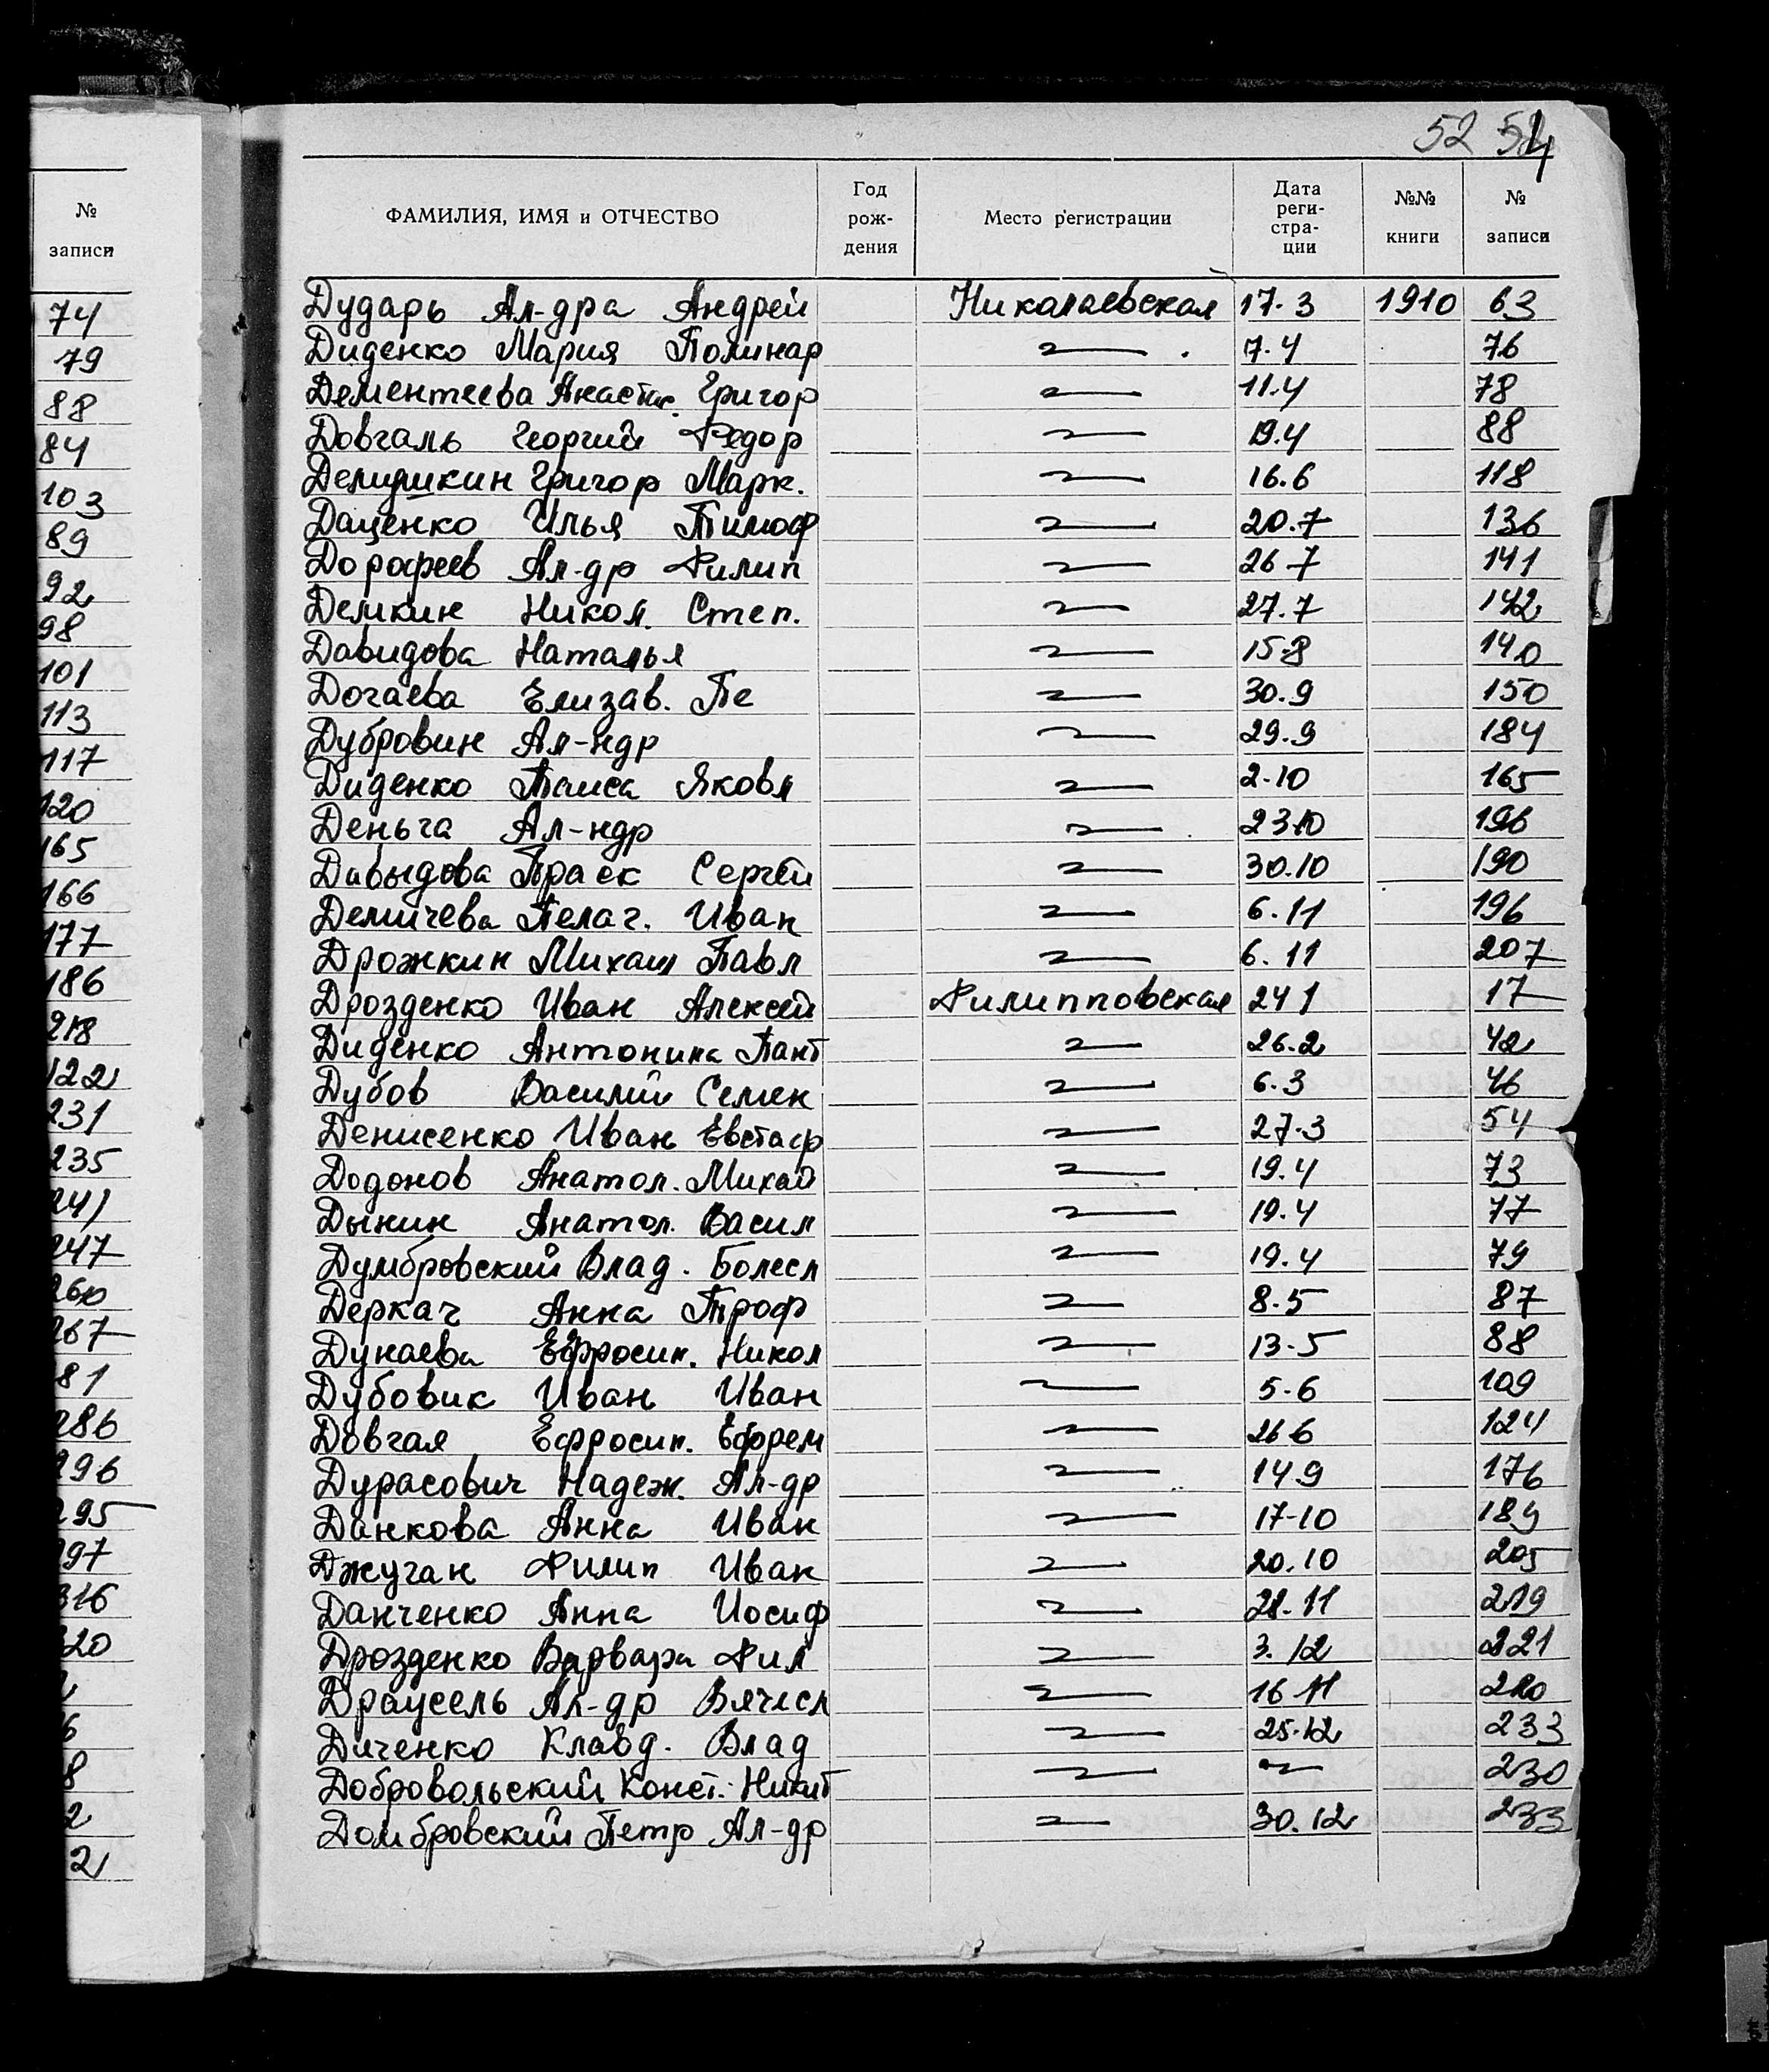 №
записи
74
79
88
84
103
89
92
98
101
113
117
120
165
166
177
186
218
122
231
235
241
247
260
267
81
286
296
295
297
316
320
6
8
2
2
52 54
ФАМИЛИЯ, ИМЯ и ОТЧЕСТВО Год рождения Место регистрации Дата реги-страции №№ книги № записи
Дударь Ал-дра Андрей Николаевская 17.3 1910 63
Диденко Мария Полинар 7.4 76
Дементеева Анастас. Григор 11.4 78
Довгаль Георгий Федор 19.4 88
Демушкин Григор Марк. 16.6 118
Даценко Илья Тимоф 20.7 136
Дорофеев Ал-др Филип 26 7 141
Демкин Никол. Степ. 27.7 142
Давидова Наталья 15-8 140
Догаева Елизав. Пе 30.9 150
Дубровин Ал-ндр 29.9 184
Диденко Таиса Яковл 2.10 165
Деньга Ал-ндр 23.10 196
Давыдова Праск Сергей 30.10 190
Демичева Пелаг. Иван 6.11 196
Дрожкин Михаил Павл 6.11 207
Дрозденко Иван Алексей Филипповская 24 1 17
Диденко Антонина Пант 26.2 42
Дубов Василий Семен 6.3 46
Денисенко Иван Евстаф 27.3 54
Додонов Анатол. Михай 19.4 73
Дынин Анатол. Васил 19.4 77
Думбровский Влад. Болесл 19.4 79
Деркач Анна Троф 8.5 87
Дунаева Ефросин. Никол 13.5 88
Дубовик Иван Иван 5.6 109
Довгая Ефросин. Ефрем 26 6 124
Дурасович Надеж. Ал-др 14.9 176
Данкова Анна Иван 17-10 189
Джуган Филип Иван 20.10 205
Данченко Анна Иосиф 28.11 219
Дрозденко Варвара Фил 3.12 221
Драусель Ал-др Вячесл 16 11 210
Диченко Клавд. Влад 25.12 233
Добровольский Конст. Никит 230
Домбровский Петр Ал-др 30.12 233